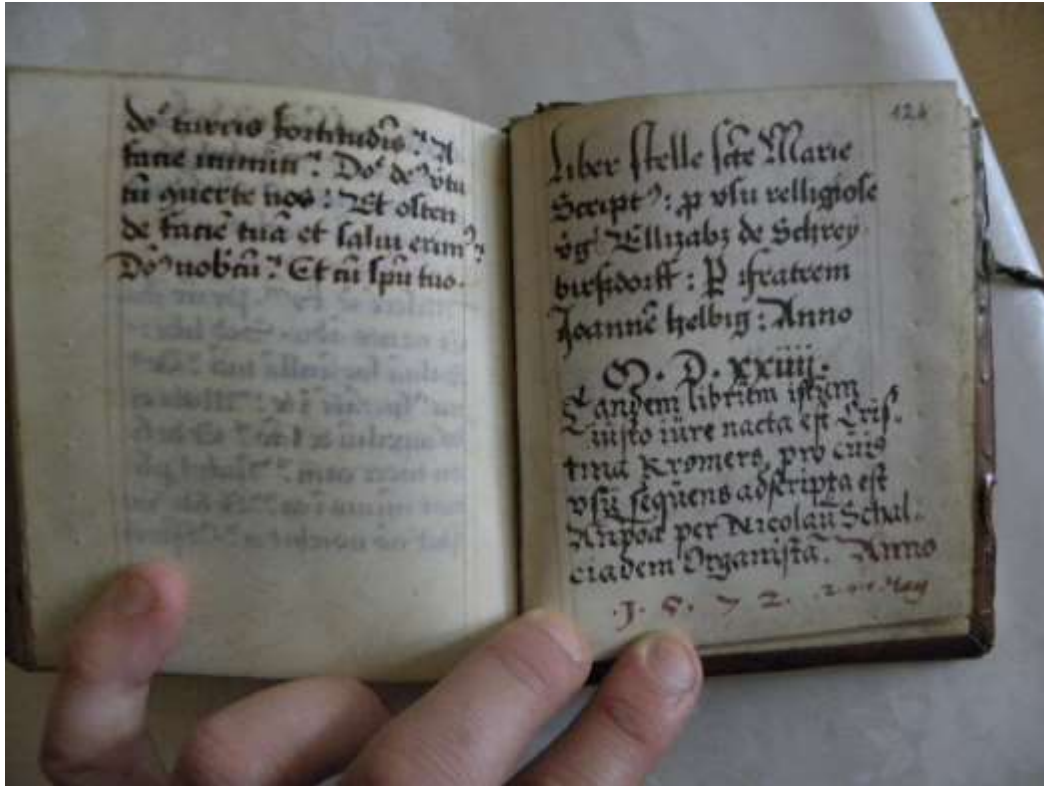 do͛ turris fortitudīs : A
facie inimici : Do͛ de v̓tu
tū ꝯuerte nos : Et osten
de faciē tuā et salui erim᷒ :
Do᷒ nobcū : Et cū spū tuo .
124
Liber stelle scte Marie
Script᷒ : ꝓ vsu relligiose
v̓g̓ Ellizabꝫ de Schrey
birsdorff : ꝑ ifratrem
Joannē helbig : Anno
M . D . xxiiij .
Tandem librum istum
iusto iure nacta est Cris-
tina Kromers, pro cuiꝰ
vsu sequens adscripta est
per Nicolaū Schal-
Organistā. Anno
. 1 . 5 . 7 2 . May